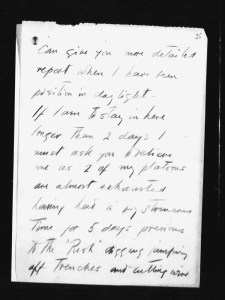 26
Can give you more detailed
report when I have seen
position in daylight -
If I am to stay in here
longer than 2 days I
must ask you to relieve
me as 2 of my platoons
are almost exhausted
having had a very strenuous
time for 5 days previous
to the "Push" digging jumping
off trenches and cutting wire